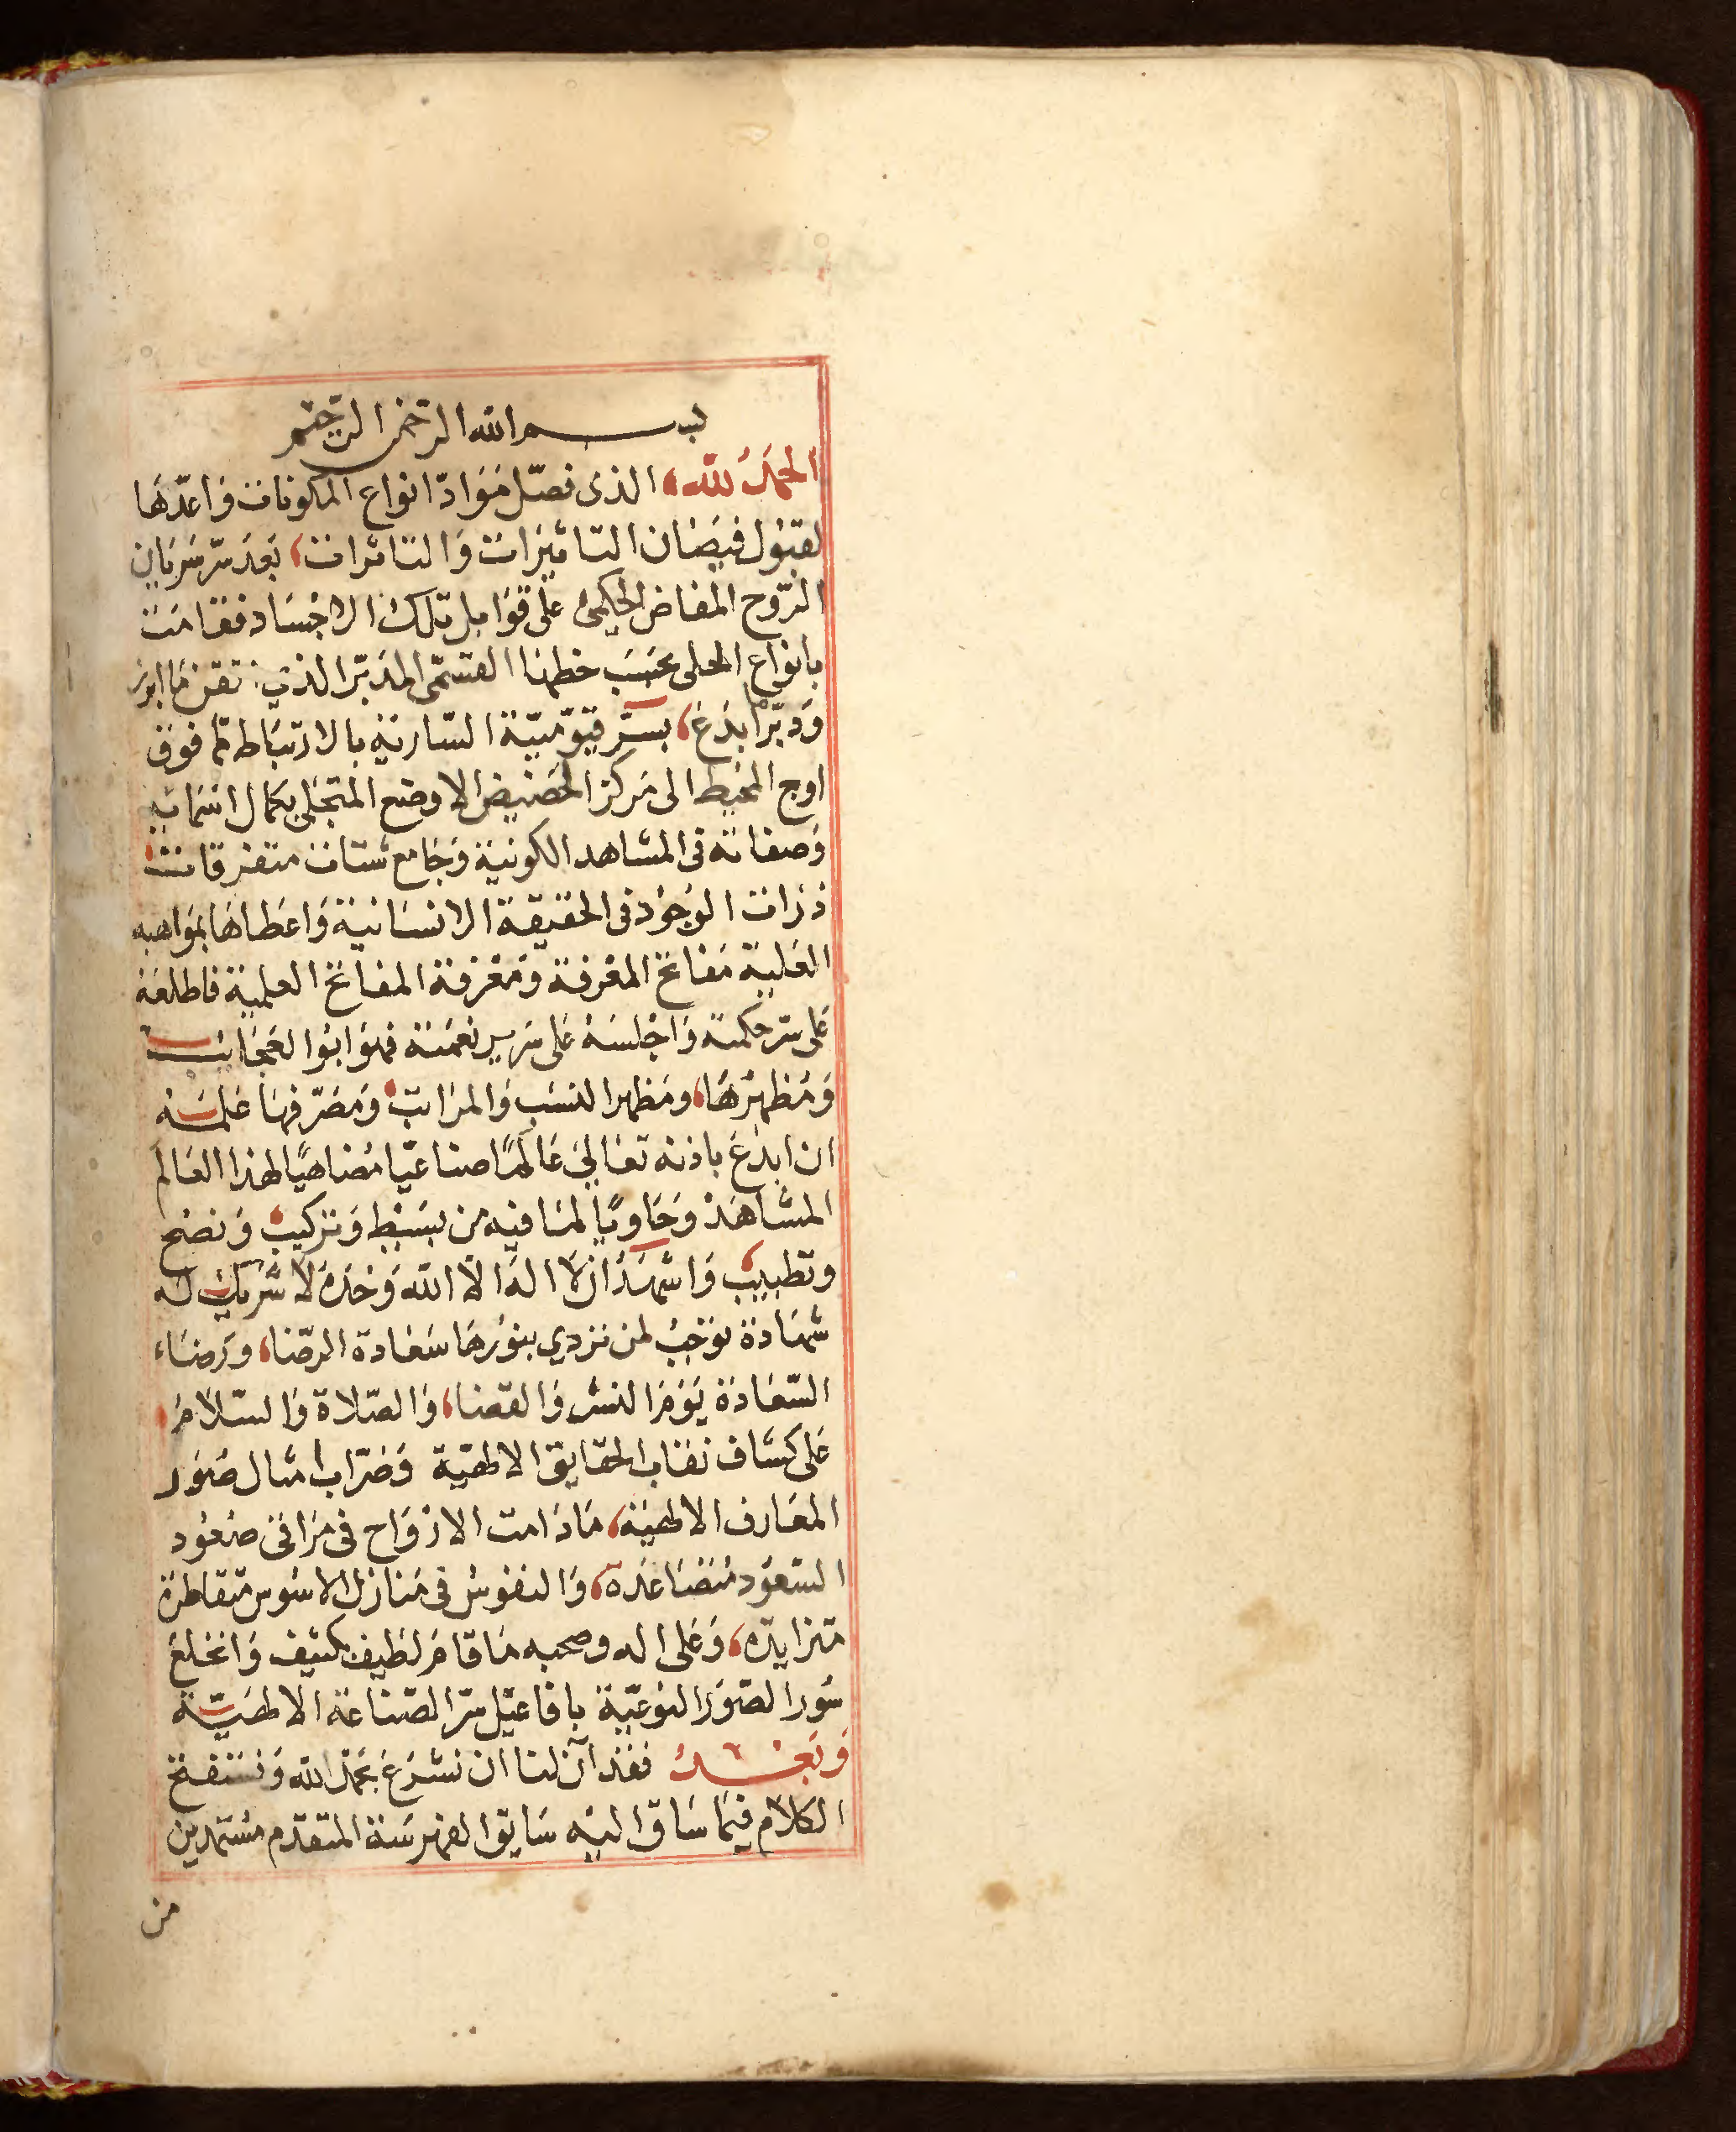 بسم الله الرحمن الرحيم
الحمد لله الذى فصّل مَوَادّ انواع المكونات وَاعدّهَا
لقبُول فيضَان التاثيرَات وَالتاثرات بَعد سرّ سَريان
الرّوح المفاض الحكمى على قوَابل تلك الاجسَاد فقامَت
بانواع الحلى بحسَب القسمى المدبّر الذي تقن مَا ابرز
وَدبّر مَا ابدَع بسرّ قيّوميّة السّاريَة بالارتبَاط ممّا فوق
اوج المحيط الى مَركز الحَضيض الاوضع المتجَلى بكمال اسمَائه
وَصفاته فى المشاهد الكونية وَجَامع شتات متفرقات
ذرات الوجُود فى الحقيقة الانسَانية وَاعطاهَا بموَاهبه
العَلية مَفاتح المعرفة وَمَعْرفة المفاتح العلمية فاطلعَهُ
عَلى سرّ حكمته وَاجْلسَهُ عَلى سَرير نعمَته فهوَ ابوُ العَجَائب
وَمُظهرُهَا ومَظهر النسَب وَالمرَاتب وَمصَرّفهَا عَلمَه
ان ابدَع باذنه تعَالى عَالمًا صناعيّا مُضاهيًا لهذا العَالم
المشَاهَد وَحَاويًا لمَا فيه من بسَيْط وَتركيب وَنضج
وتطبيب وَاشهَد ان لا الهَ الّا الله وَحْدَهُ لَا شَريْك له
شهَادة توجبُ لمن تردي بنوُرهَا سَعَادة الرضَا وَرضَاء
السّعَادَة يَوْمَ النشر وَالقضَا وَالصّلاة وَالسّلَامُ
عَلى كشاف نقاب الحقايق الالهية وَضرّاب امثال صُوَر
المعَارف الالهيَة مَا دَامت الارْوَاح فى مرَاقى صعُود
السّعُود متصَاعدَة وَالنفوس فى مَنازل الاسُوس متقاطرة
متزايدة وَعَلى اله وصحبه مَا قامَ لطيف بكثيف وَانخلعَ
سُور الصّوَر النوعيّة بافاعيْل سرّ الصّناعَة الالهيّة
وَبَعْدُ فقدْ آنَ لنا ان نشرَع بحَمْد الله وَنستفتح
الكلام فيمَا سَاق اليْه سَابق الفهرسَة المتقدّم مسْتمدين
من